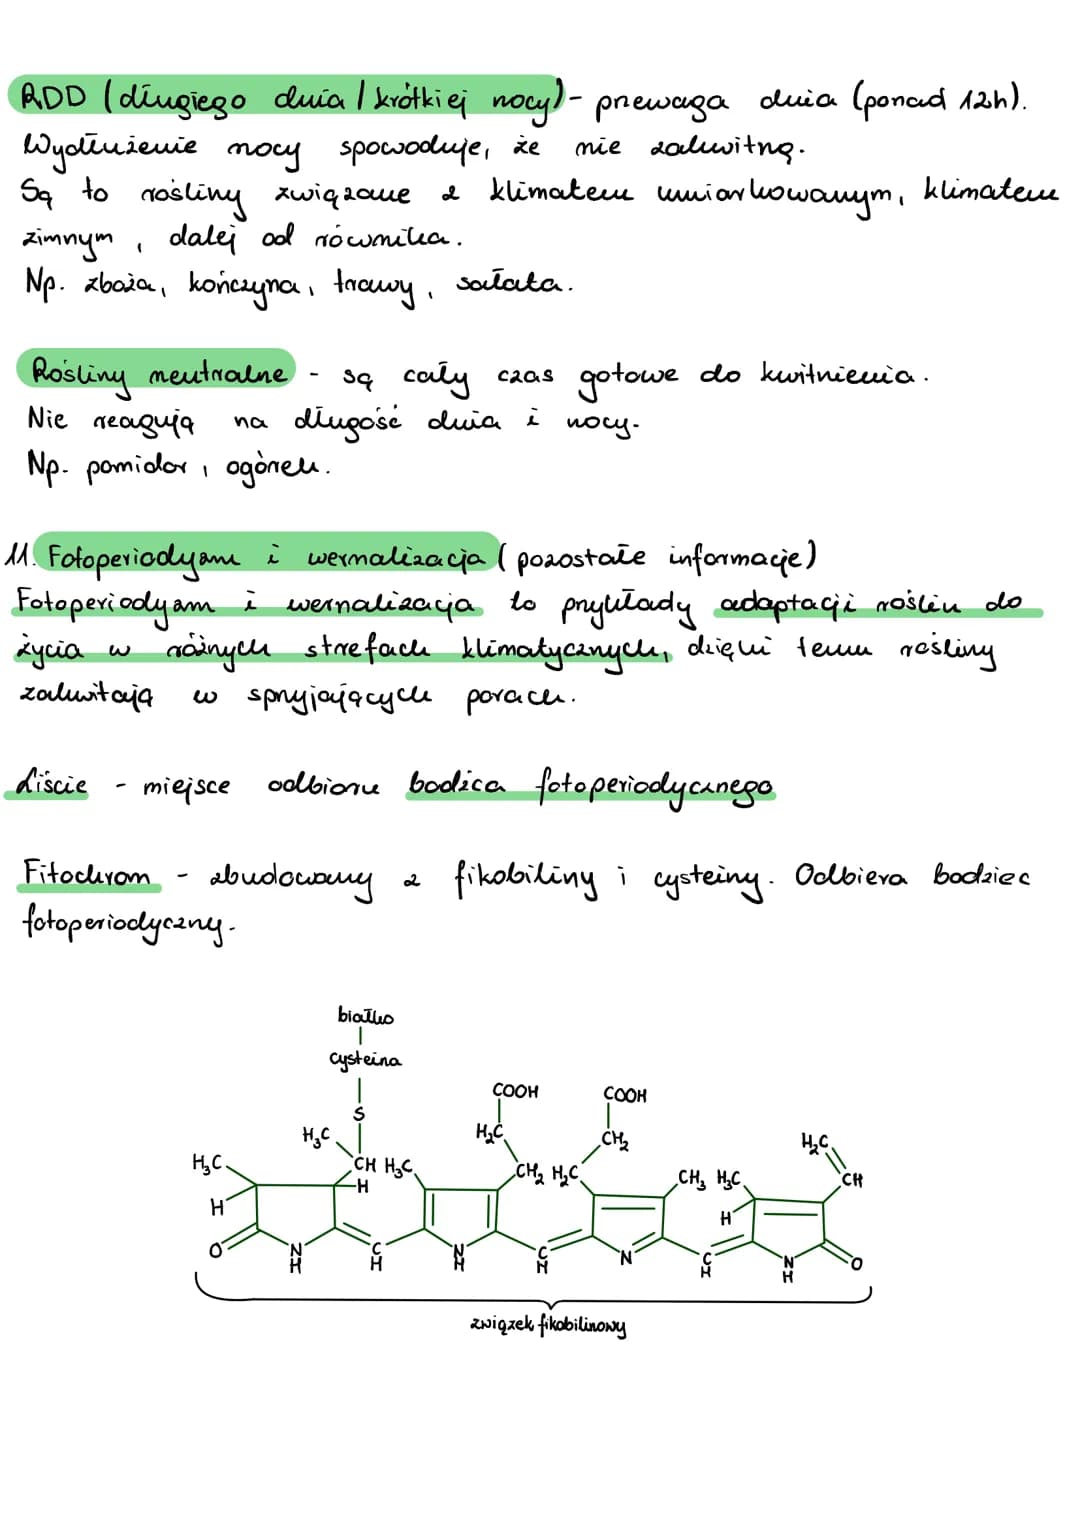 RDD (długiego dnia / krótkiej nocy) - przewaga dnia (ponad 12h).
Wydłużenie nocy spowoduje, że nie zakwitną.
Są to rośliny związane z klimatem umiarkowanym, klimatem
zimnym, dalej od równika.
Np. zboża, kończyna, trawy, sałata.
Rośliny neutralne - są cały czas gotowe do kwitnienia.
Nie reagują na długość dnia i nocy.
Np. pomidor, ogórek.
11. Fotoperiodyzm i wernalizacja (pozostałe informacje)
Fotoperiodyzm i wernalizacja to przykłady adaptacji roślin do
życia w różnych strefach klimatycznych, dzięki temu rośliny
zakwitają w sprzyjających porach.
Liście - miejsce odbioru bodźca fotoperiodycznego
Fitochrom - zbudowany z fikobiliny i cysteiny. Odbiera bodziec
fotoperiodyczny.
białko
cysteina
S
COOH COOH
H3C H2C CH2 H2C
H3C CH H3C CH2 H2C CH3 H3C CH
H H H
O N H C H N H C H N C H N H O
związek fikobilinowy